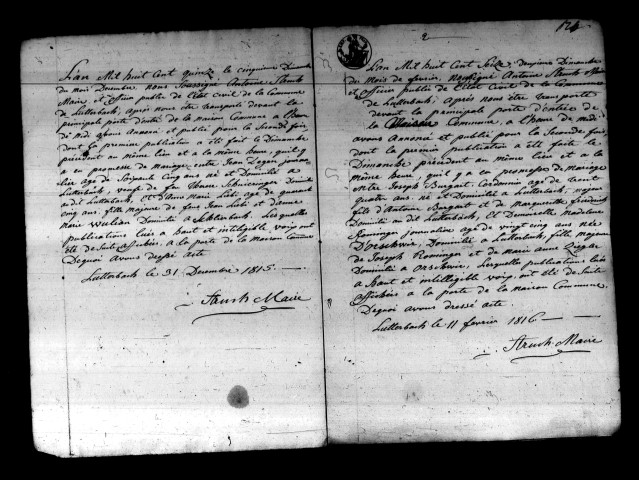 L'an Mil huit Cent quinze le cinquieme Dimanche
du mois Decembre nous soussigné Antoine Strub
Maire et officier public de l'Etat Civil de la Commune
de Lutterbach, après nous être transporté devant la
principale porte d'entré de la maison Commune a l'heure
de midi avons Annoncé et publié pour la Seconde fois
dont la premiere publication a été faite le Dimanche
précédent au même lieu et a la même heure, qu'il y
a en promesse de Mariage entre Jean journa-
lier agé de cinquante Cinq ans né et Domicilié a
Lutterbach, veuf de feu Domicilié
audit Lutterbach, et d'Anne Marie agé de quarant
Cinq ans, fille majeure de feus Jean et d'anne
Marie Domicilié a Lesquelles
publications luës a haut et intelligible voix ont
été de Suite affichées, a la porte de la Maison Commune
Dequoi avons dressé acte
Lutterbach le 31 Decembre 1815.
Strub Maire
2
L'an Mil huit Cent Seize deuxieme Dimanche
du Mois de fevrier, soussigné Antoine Strub
et officier public de l'Etat Civil de la Commune
de Lutterbach, après nous être transporté
devant la principale porte d'entrée de
la Maison Commune, a l'heure de midi
avons Annoncé et publié pour la Seconde fois,
dont la premiere publication a été faite le
Dimanche précédent au même lieu et a la
même heure, qu'il y a en promesse de Mariage
entre Joseph Bungart Cordonnier agé de vent
quatre ans né et Domicilié a Lutterbach, majeur
fils d'Antoine Bungart et de Marguerite friedrich
Domicilié au dit Lutterbach, Et Demoiselle Madeleine
Romminger journaliere agé de vingt cinq ans née
D'orschwir, Domicilié a Lutterbach, fille majeure
de Joseph Romminger et de marie anne Ziegler
Domicilié a Orschwir, Lesquelles publications luës
a haut et intelligible voix, ont été de Suite
affichées a la porte de la Maison Commune,
Dequoi avons dressé acte.
Lutterbach le 11 fevrier 1816
Strub Maire